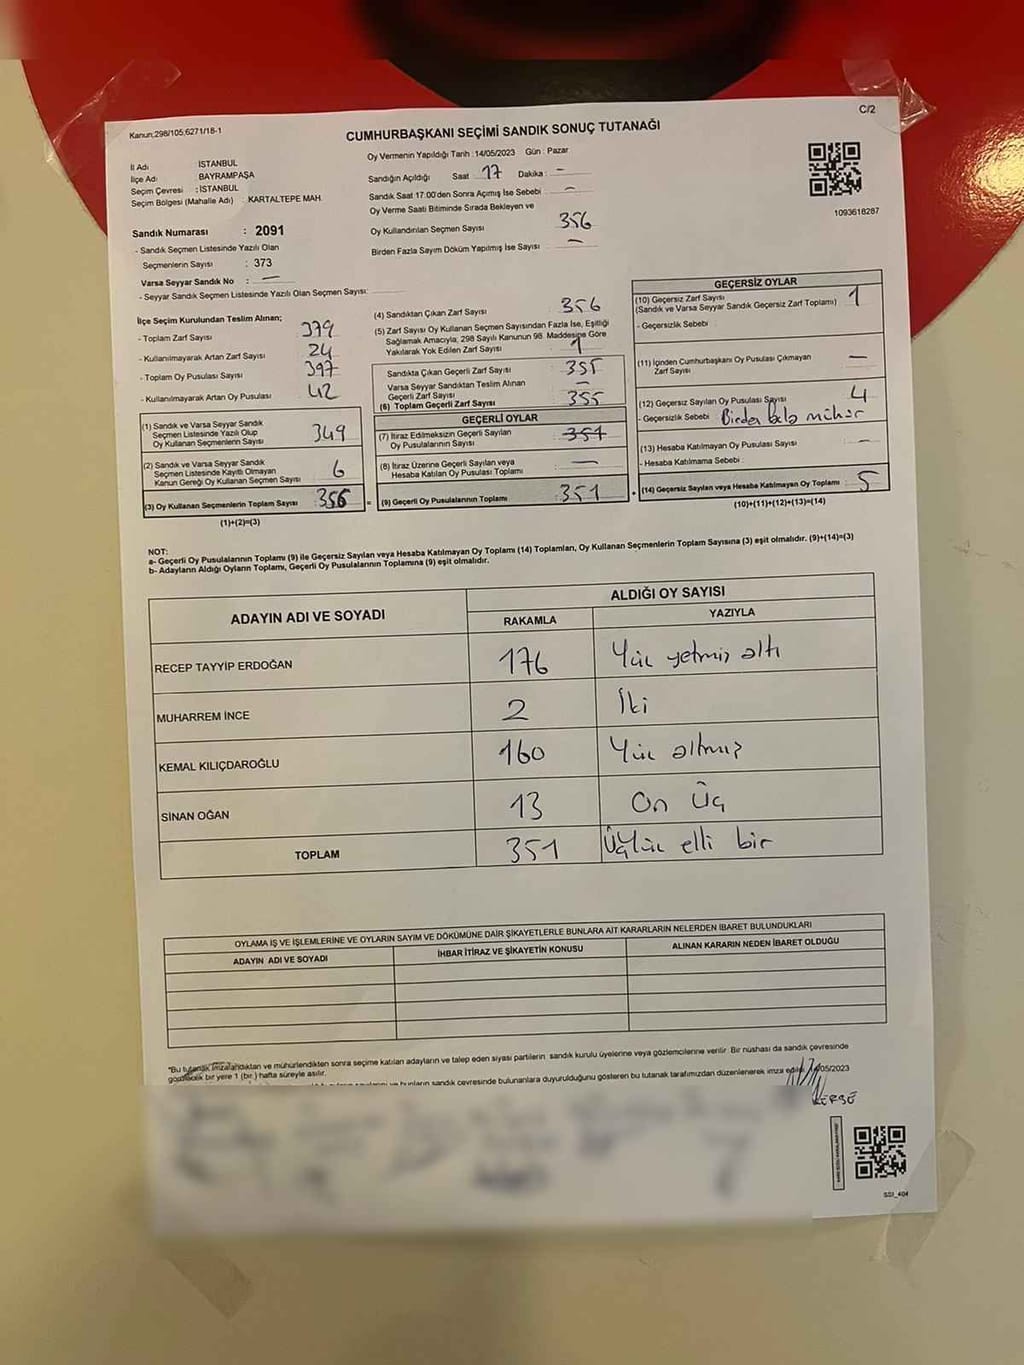 C/2
Kanun;298/105;6271/18-1
CUMHURBAŞKANI SEÇİMİ SANDIK SONUÇ TUTANAĞI
İl Adı İSTANBUL
İlçe Adı BAYRAMPAŞA
Seçim Çevresi : İSTANBUL
Seçim Bölgesi (Mahalle Adı) : KARTALTEPE MAH.
Sandık Numarası : 2091
- Sandık Seçmen Listesinde Yazılı Olan
Seçmenlerin Sayısı : 373
Varsa Seyyar Sandık No : —
- Seyyar Sandık Seçmen Listesinde Yazılı Olan Seçmen Sayısı:
Oy Vermenin Yapıldığı Tarih :14/05/2023 Gün : Pazar
Sandığın Açıldığı Saat : 17 Dakika : –
Sandık Saat 17:00'den Sonra Açımış İse Sebebi : –
Oy Verme Saati Bitiminde Sırada Bekleyen ve
Oy Kullandırılan Seçmen Sayısı 356
Birden Fazla Sayım Döküm Yapılmış İse Sayısı : –
1093618287
İlçe Seçim Kurulundan Teslim Alınan;
- Toplam Zarf Sayısı 379
- Kullanılmayarak Artan Zarf Sayısı 24
- Toplam Oy Pusulası Sayısı 397
- Kullanılmayarak Artan Oy Pusulası 42
(1) Sandık ve Varsa Seyyar Sandık
Seçmen Listesinde Yazılı Olup
Oy Kullanan Seçmenlerin Sayısı 349
(2) Sandık ve Varsa Seyyar Sandık
Seçmen Listesinde Kayıtlı Olmayan
Kanun Gereği Oy Kullanan Seçmen Sayısı 6
(3) Oy Kullanan Seçmenlerin Toplam Sayısı 356 =
(1)+(2)=(3)
(4) Sandıktan Çıkan Zarf Sayısı 356
(5) Zarf Sayısı Oy Kullanan Seçmen Sayısından Fazla İse, Eşitliği
Sağlamak Amacıyla; 298 Sayılı Kanunun 98. Maddesine Göre
Yakılarak Yok Edilen Zarf Sayısı 1
Sandıkta Çıkan Geçerli Zarf Sayısı 355
Varsa Seyyar Sandıktan Teslim Alınan
Geçerli Zarf Sayısı –
(6) Toplam Geçerli Zarf Sayısı 355
GEÇERLİ OYLAR
(7) İtiraz Edilmeksizin Geçerli Sayılan
Oy Pusulalarının Sayısı 351
(8) İtiraz Üzerine Geçerli Sayılan veya
Hesaba Katılan Oy Pusulası Toplamı —
(9) Geçerli Oy Pusulalarının Toplamı 351 +
GEÇERSİZ OYLAR
(10) Geçersiz Zarf Sayısı
(Sandık ve Varsa Seyyar Sandık Geçersiz Zarf Toplamı) 1
- Geçersizlik Sebebi :
(11) İçinden Cumhurbaşkanı Oy Pusulası Çıkmayan
Zarf Sayısı —
(12) Geçersiz Sayılan Oy Pusulası Sayısı 4
- Geçersizlik Sebebi : mühür
(13) Hesaba Katılmayan Oy Pusulası Sayısı –
- Hesaba Katılmama Sebebi :
(14) Geçersiz Sayılan veya Hesaba Katılmayan Oy Toplamı 5
(10)+(11)+(12)+(13)=(14)
NOT:
a- Geçerli Oy Pusulalarının Toplamı (9) ile Geçersiz Sayılan veya Hesaba Katılmayan Oy Toplamı (14) Toplamları, Oy Kullanan Seçmenlerin Toplam Sayısına (3) eşit olmalıdır. (9)+(14)=(3)
b- Adayların Aldığı Oyların Toplamı, Geçerli Oy Pusulalarının Toplamına (9) eşit olmalıdır.
ADAYIN ADI VE SOYADI ALDIĞI OY SAYISI
RAKAMLA YAZIYLA
RECEP TAYYİP ERDOĞAN 176 Yüz yetmiş altı
MUHARREM İNCE 2 İki
KEMAL KILIÇDAROĞLU 160 Yüz altmış
SİNAN OĞAN 13 On Üç
TOPLAM 351 Üçyüz elli bir
OYLAMA İŞ VE İŞLEMLERİNE VE OYLARIN SAYIM VE DÖKÜMÜNE DAİR ŞİKAYETLERLE BUNLARA AİT KARARLARIN NELERDEN İBARET BULUNDUKLARI
ADAYIN ADI VE SOYADI İHBAR İTİRAZ VE ŞİKAYETİN KONUSU ALINAN KARARIN NEDEN İBARET OLDUĞU
*Bu tutanak imzalandıktan ve mühürlendikten sonra seçime katılan adayların ve talep eden siyasi partilerin sandık kurulu üyelerine veya gözlemcilerine verilir. Bir nüshası da sandık çevresinde
görülecek bir yere 1 (bir) hafta süreyle asılır.
ve bunların sandık çevresinde bulunanlara duyurulduğunu gösteren bu tutanak tarafımızdan düzenlenerek imza edildi. /05/2023
SSI_404